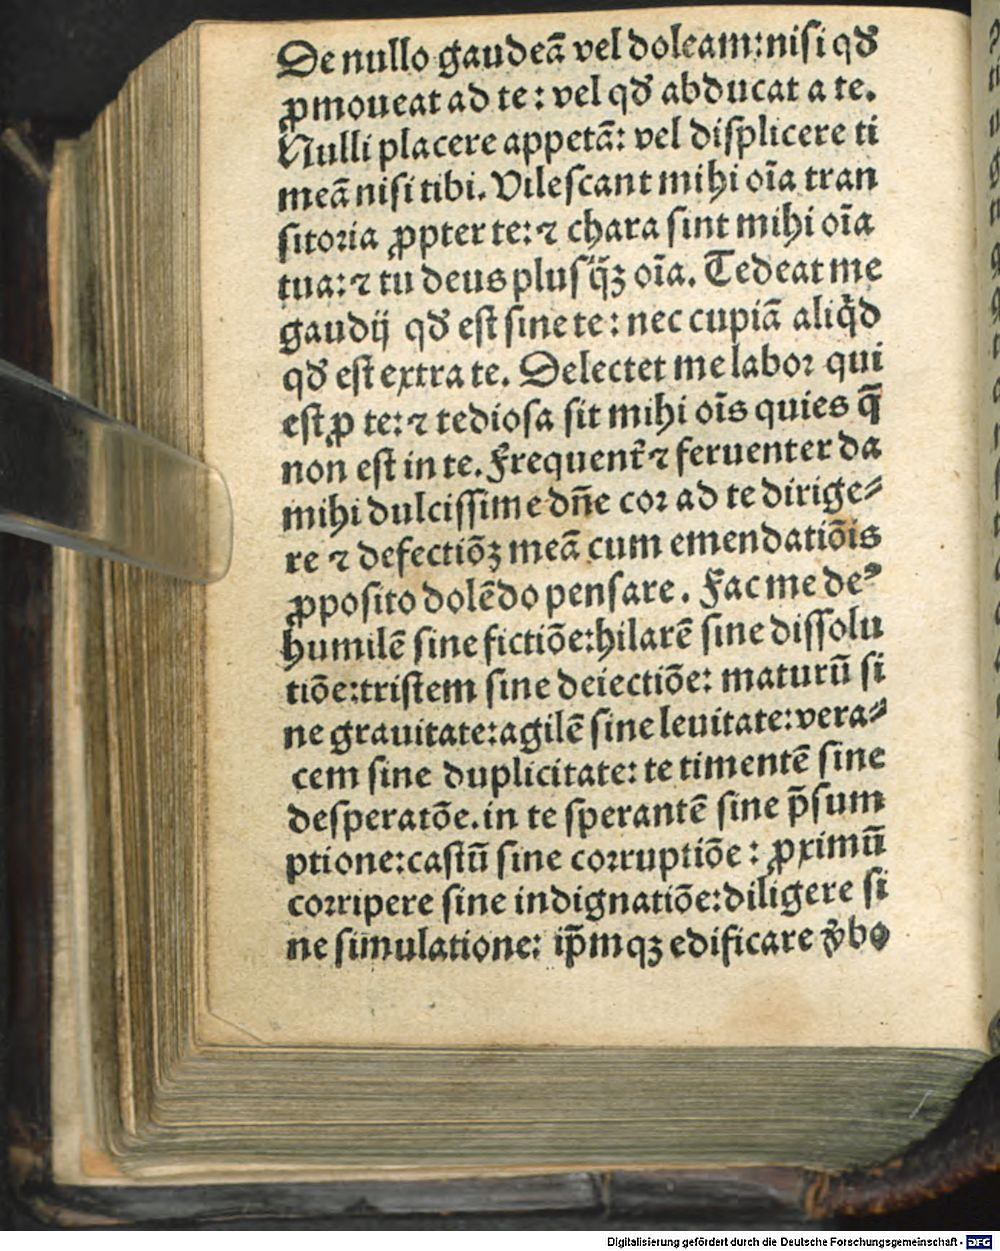 De nullo gaudeã vel doleam: nisi qđ
ꝓmoueat ad te: vel qđ abducat a te.
Nulli placere appetã: vel displicere ti
meã nisi tibi. Vilescant mihi oĩa tran
sitoꝛia ꝓpter te: ⁊ chara sint mihi oĩa
tua: ⁊ tu deus plusq̃ꝫ oĩa. Tedeat me
gaudij qđ est sine te: nec cupiã aliqd
qđ est extra te. Delectet me laboꝛ qui
est ꝓ te: ⁊ tediosa sit mihi oĩs quies q̃
non est in te. Frequenť ⁊ feruenter da
mihi dulcissime dñe coꝛ ad te dirige⸗
re ⁊ defectiõꝫ meã cum emendatiõis
ꝓposito dolẽdo pensare. Fac me deꝰ
humilẽ sine fictiõe: hilarẽ sine dissolu
tiõe: tristem sine deiectiõe: maturũ si
ne grauitate: agilẽ sine leuitate: vera⸗
cem sine duplicitate: te timentẽ sine
desperatõe. in te sperantẽ sine p̃sum
ptione: castũ sine coꝛruptiõe: ꝓximũ
coꝛripere sine indignatiõe: diligere si
ne simulatione: ip̃mqꝫ edificare ṽbo
Digitalisierung gefördert durch die Deutsche Forschungsgemeinschaft - DFG